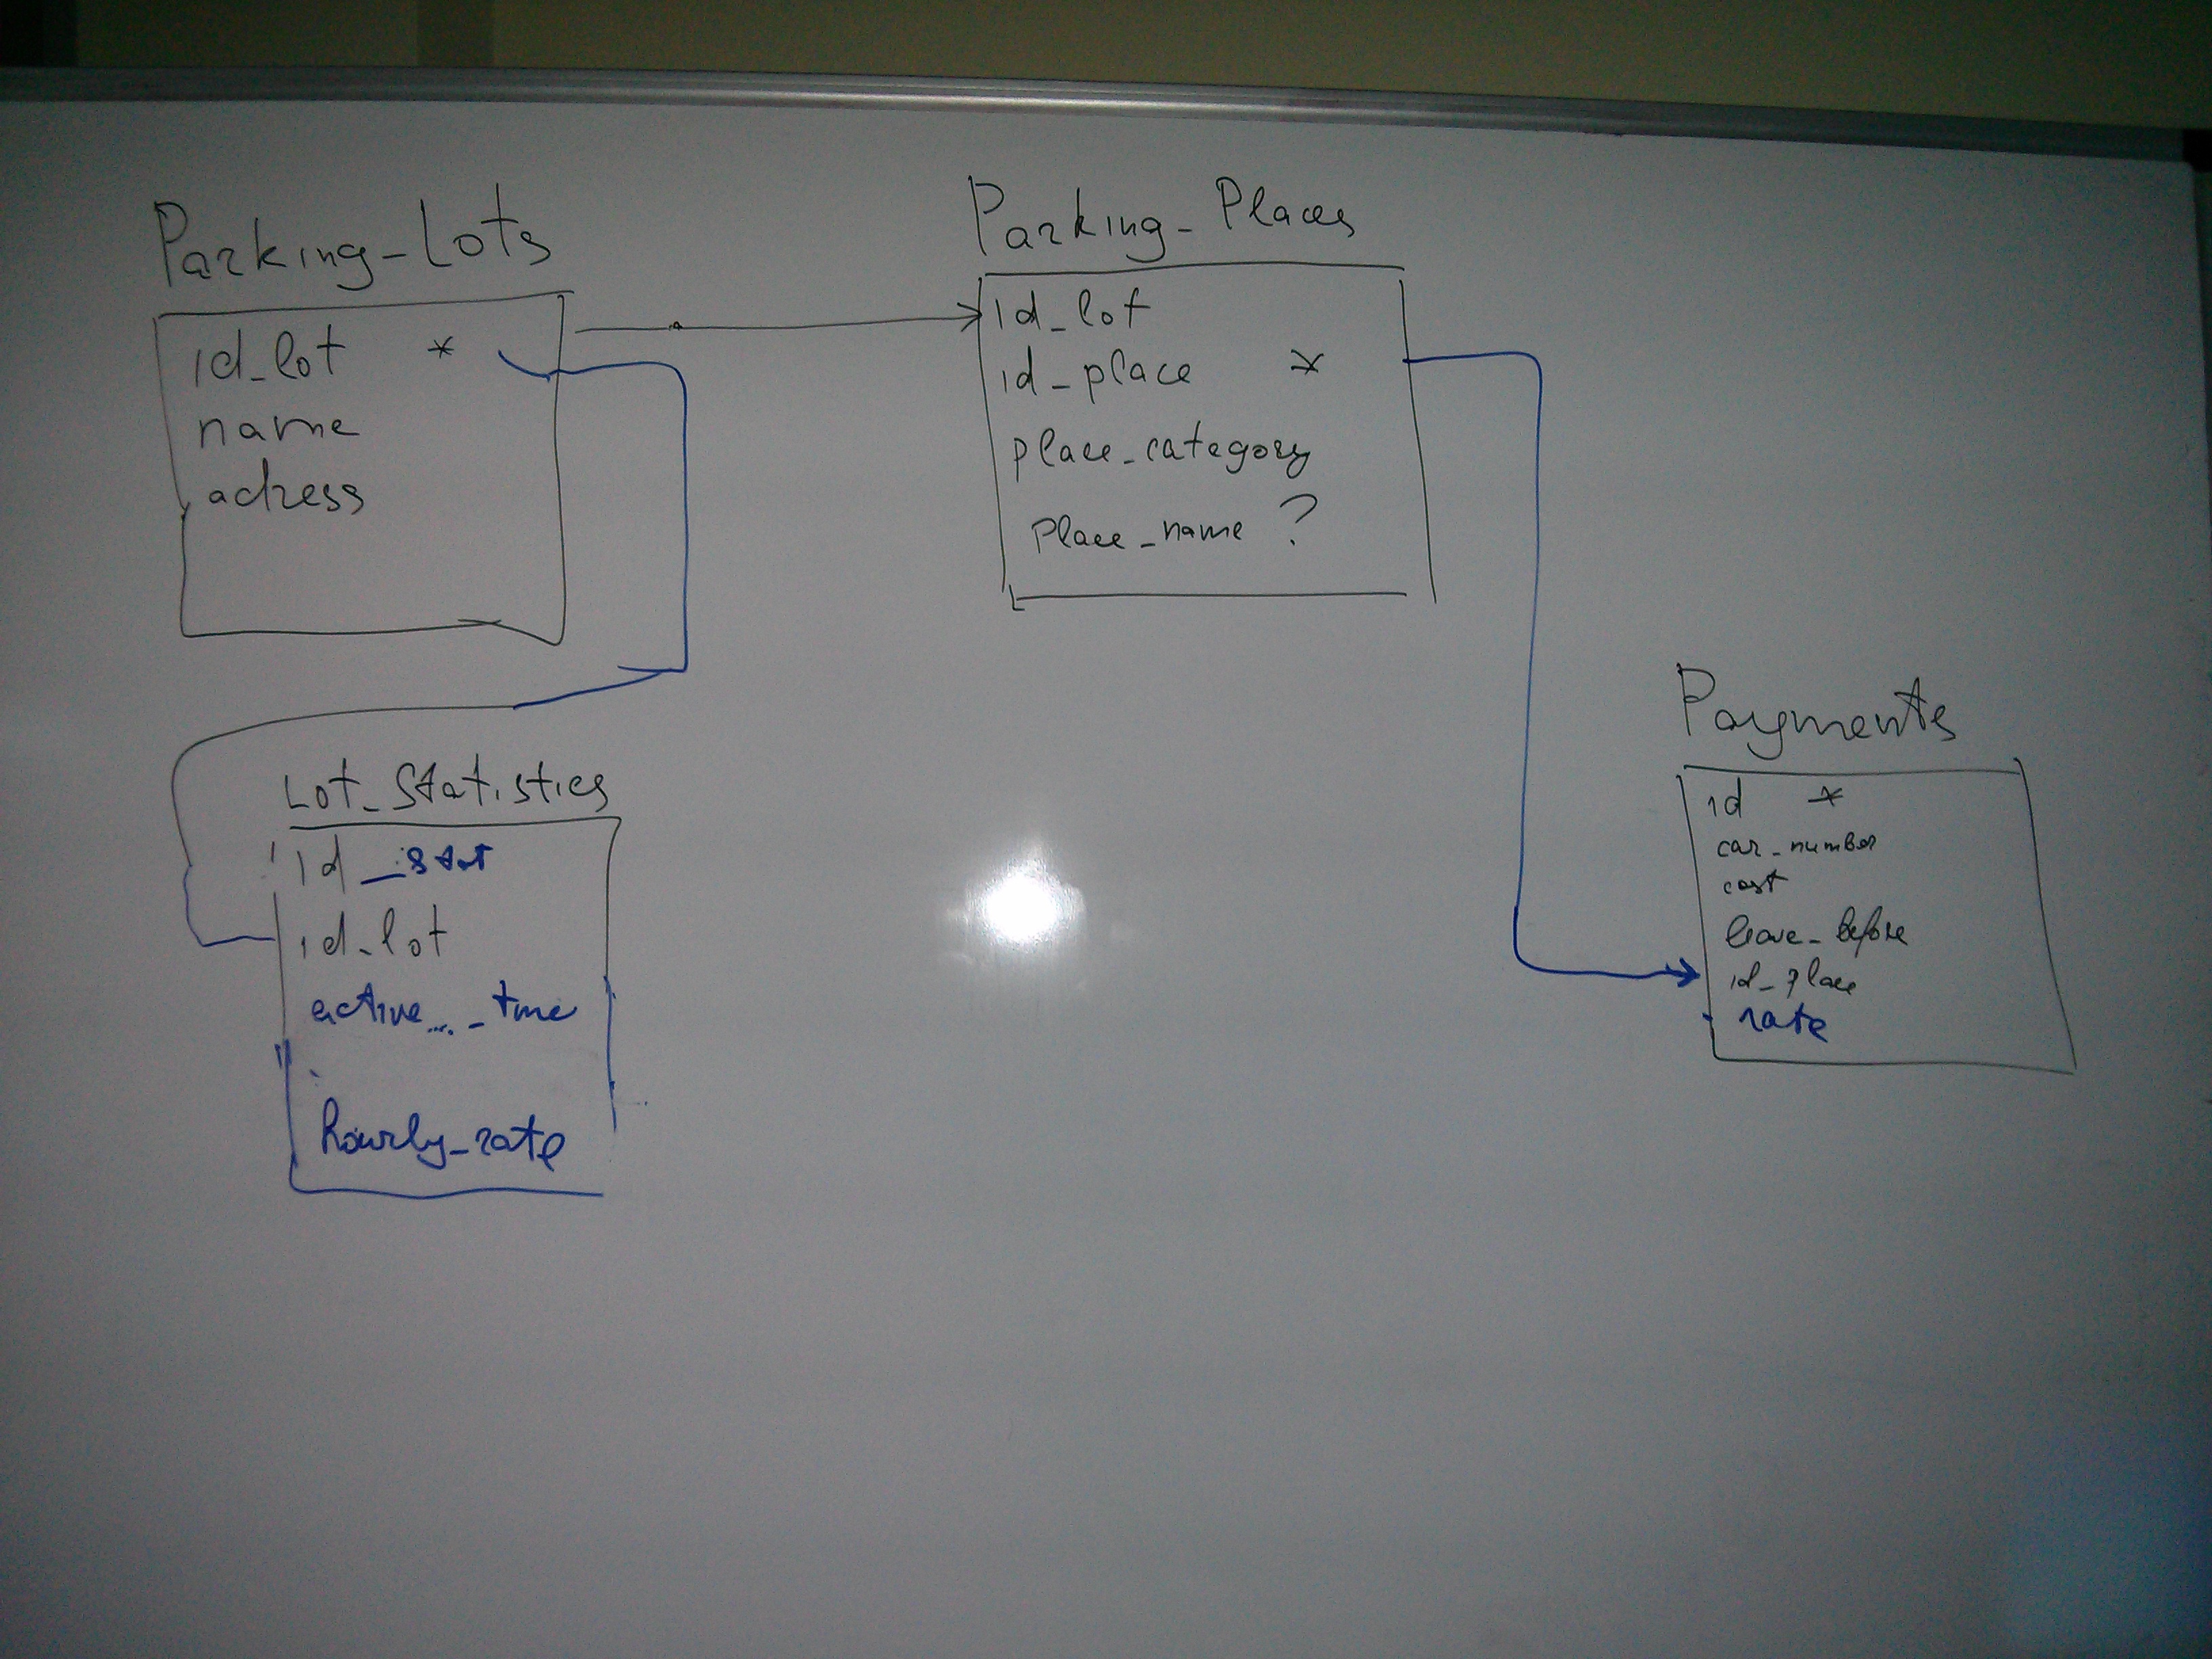 Parking_Lots
id_lot *
name
adress
Parking_Places
id_lot
id_place *
place_category
Place_name ?
Lot_Statistics
id_stat
id_lot
active..._time
hourly_rate
Payments
id *
car_number
cost
leave_before
id_place
rate